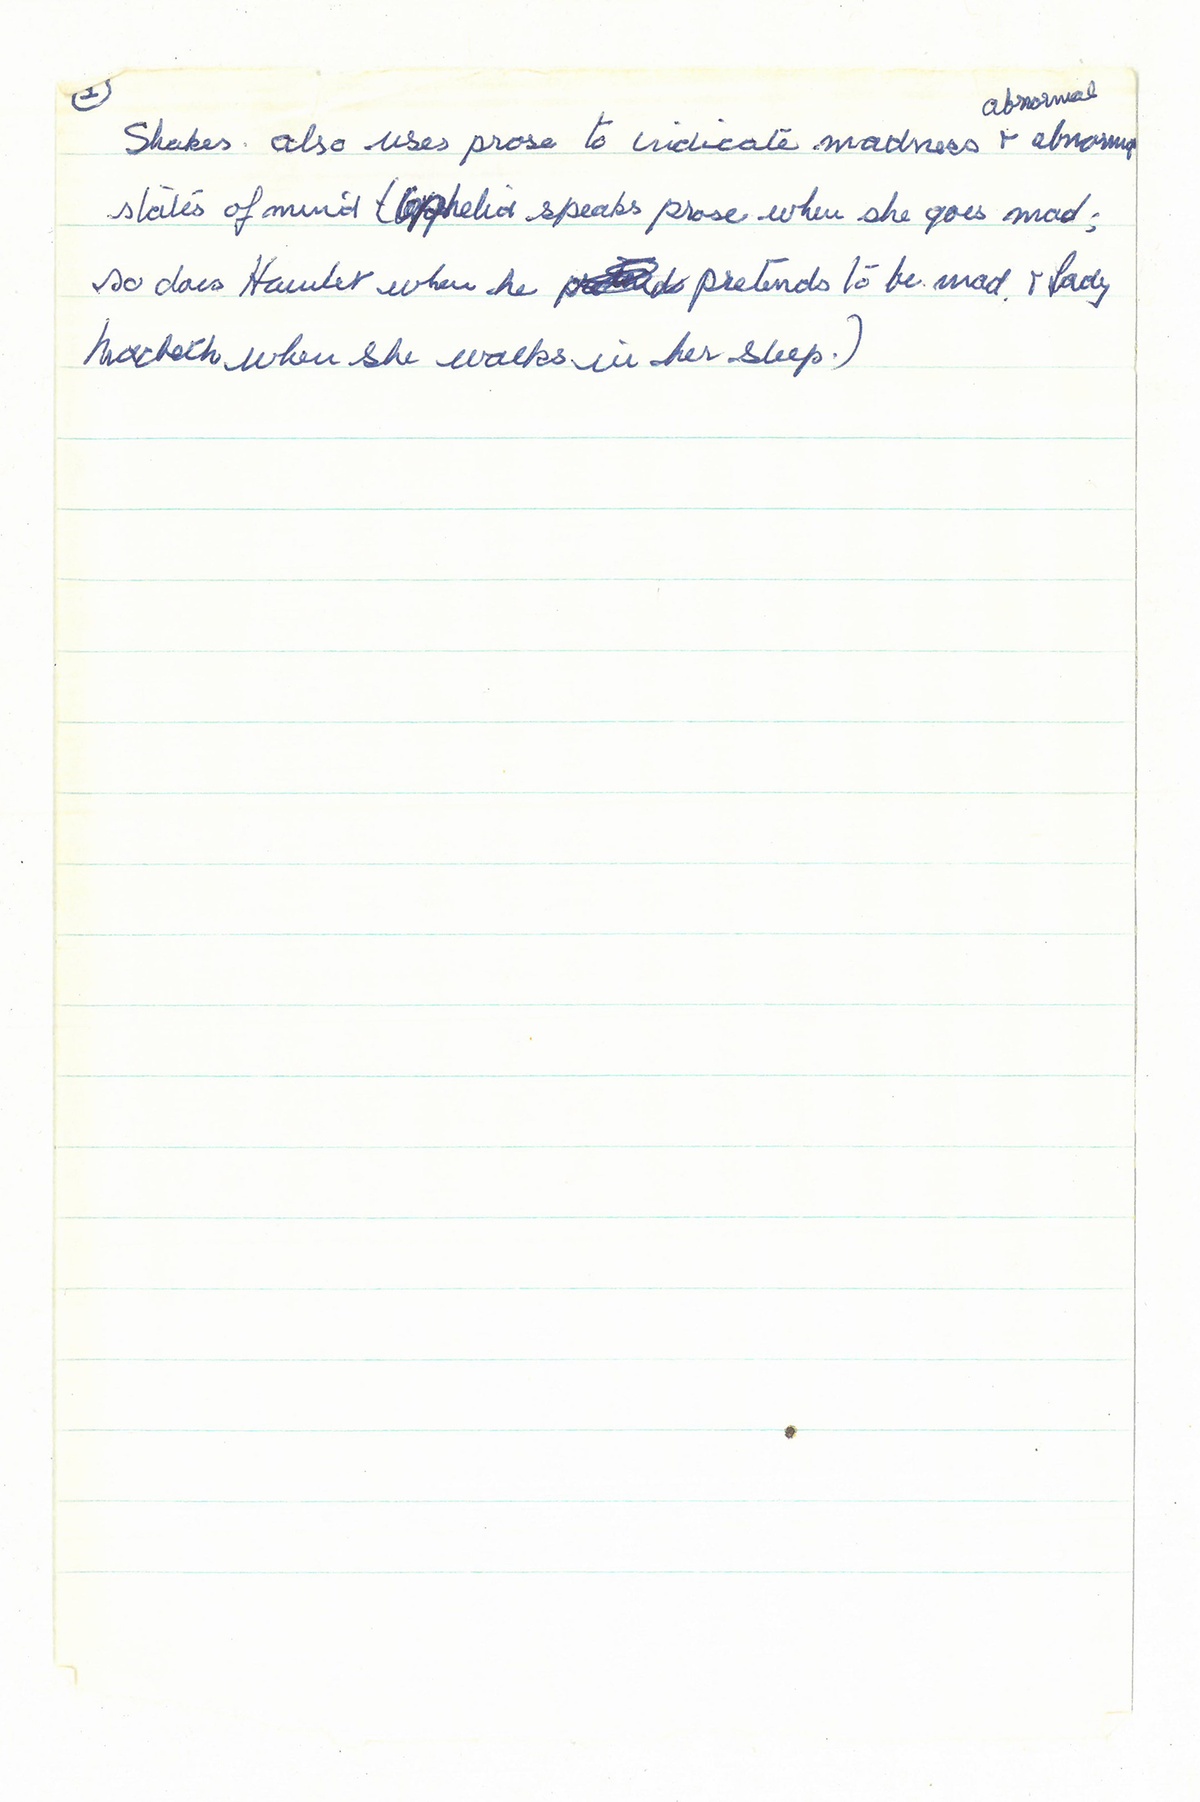 abnormal
Shakes. also uses prose to indicate madness & abnormal
states of mind (Ophelia speaks prose when she goes mad;
so does Hamlet when he pretends to be mad, & Lady
Macbeth when she walks in her sleep.)